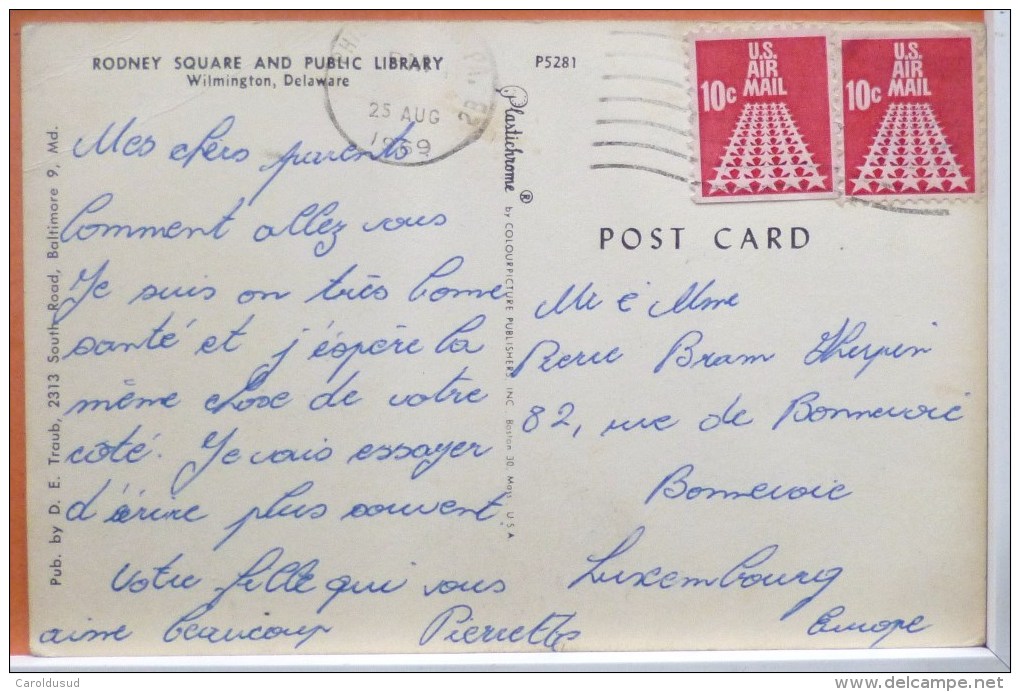 RODNEY SQUARE AND PUBLIC LIBRARY
Wilmington, Delaware
P5281
25 AUG
1969
U.S.
AIR
MAIL
10c
U.S.
AIR
MAIL
10c
Pub. by D. E. Traub, 2313 South Road, Baltimore 9, Md.
Plastichrome ® by COLOURPICTURE PUBLISHERS, INC. Boston 30, Mass., U.S.A.
POST CARD
Mes chers parents
Comment allez vous
Je suis on très bonne
santé et j'éspère la
même chose de votre
côté. Je vais essayer
d'écrire plus souvent.
Votre fille qui vous
aime beaucoup Pierrette
Mr & Mme
Pierre Bram
82, rue de Bonnevoie
Bonnevoie
Luxembourg
Europe
Caroldusud
www.delcampe.net